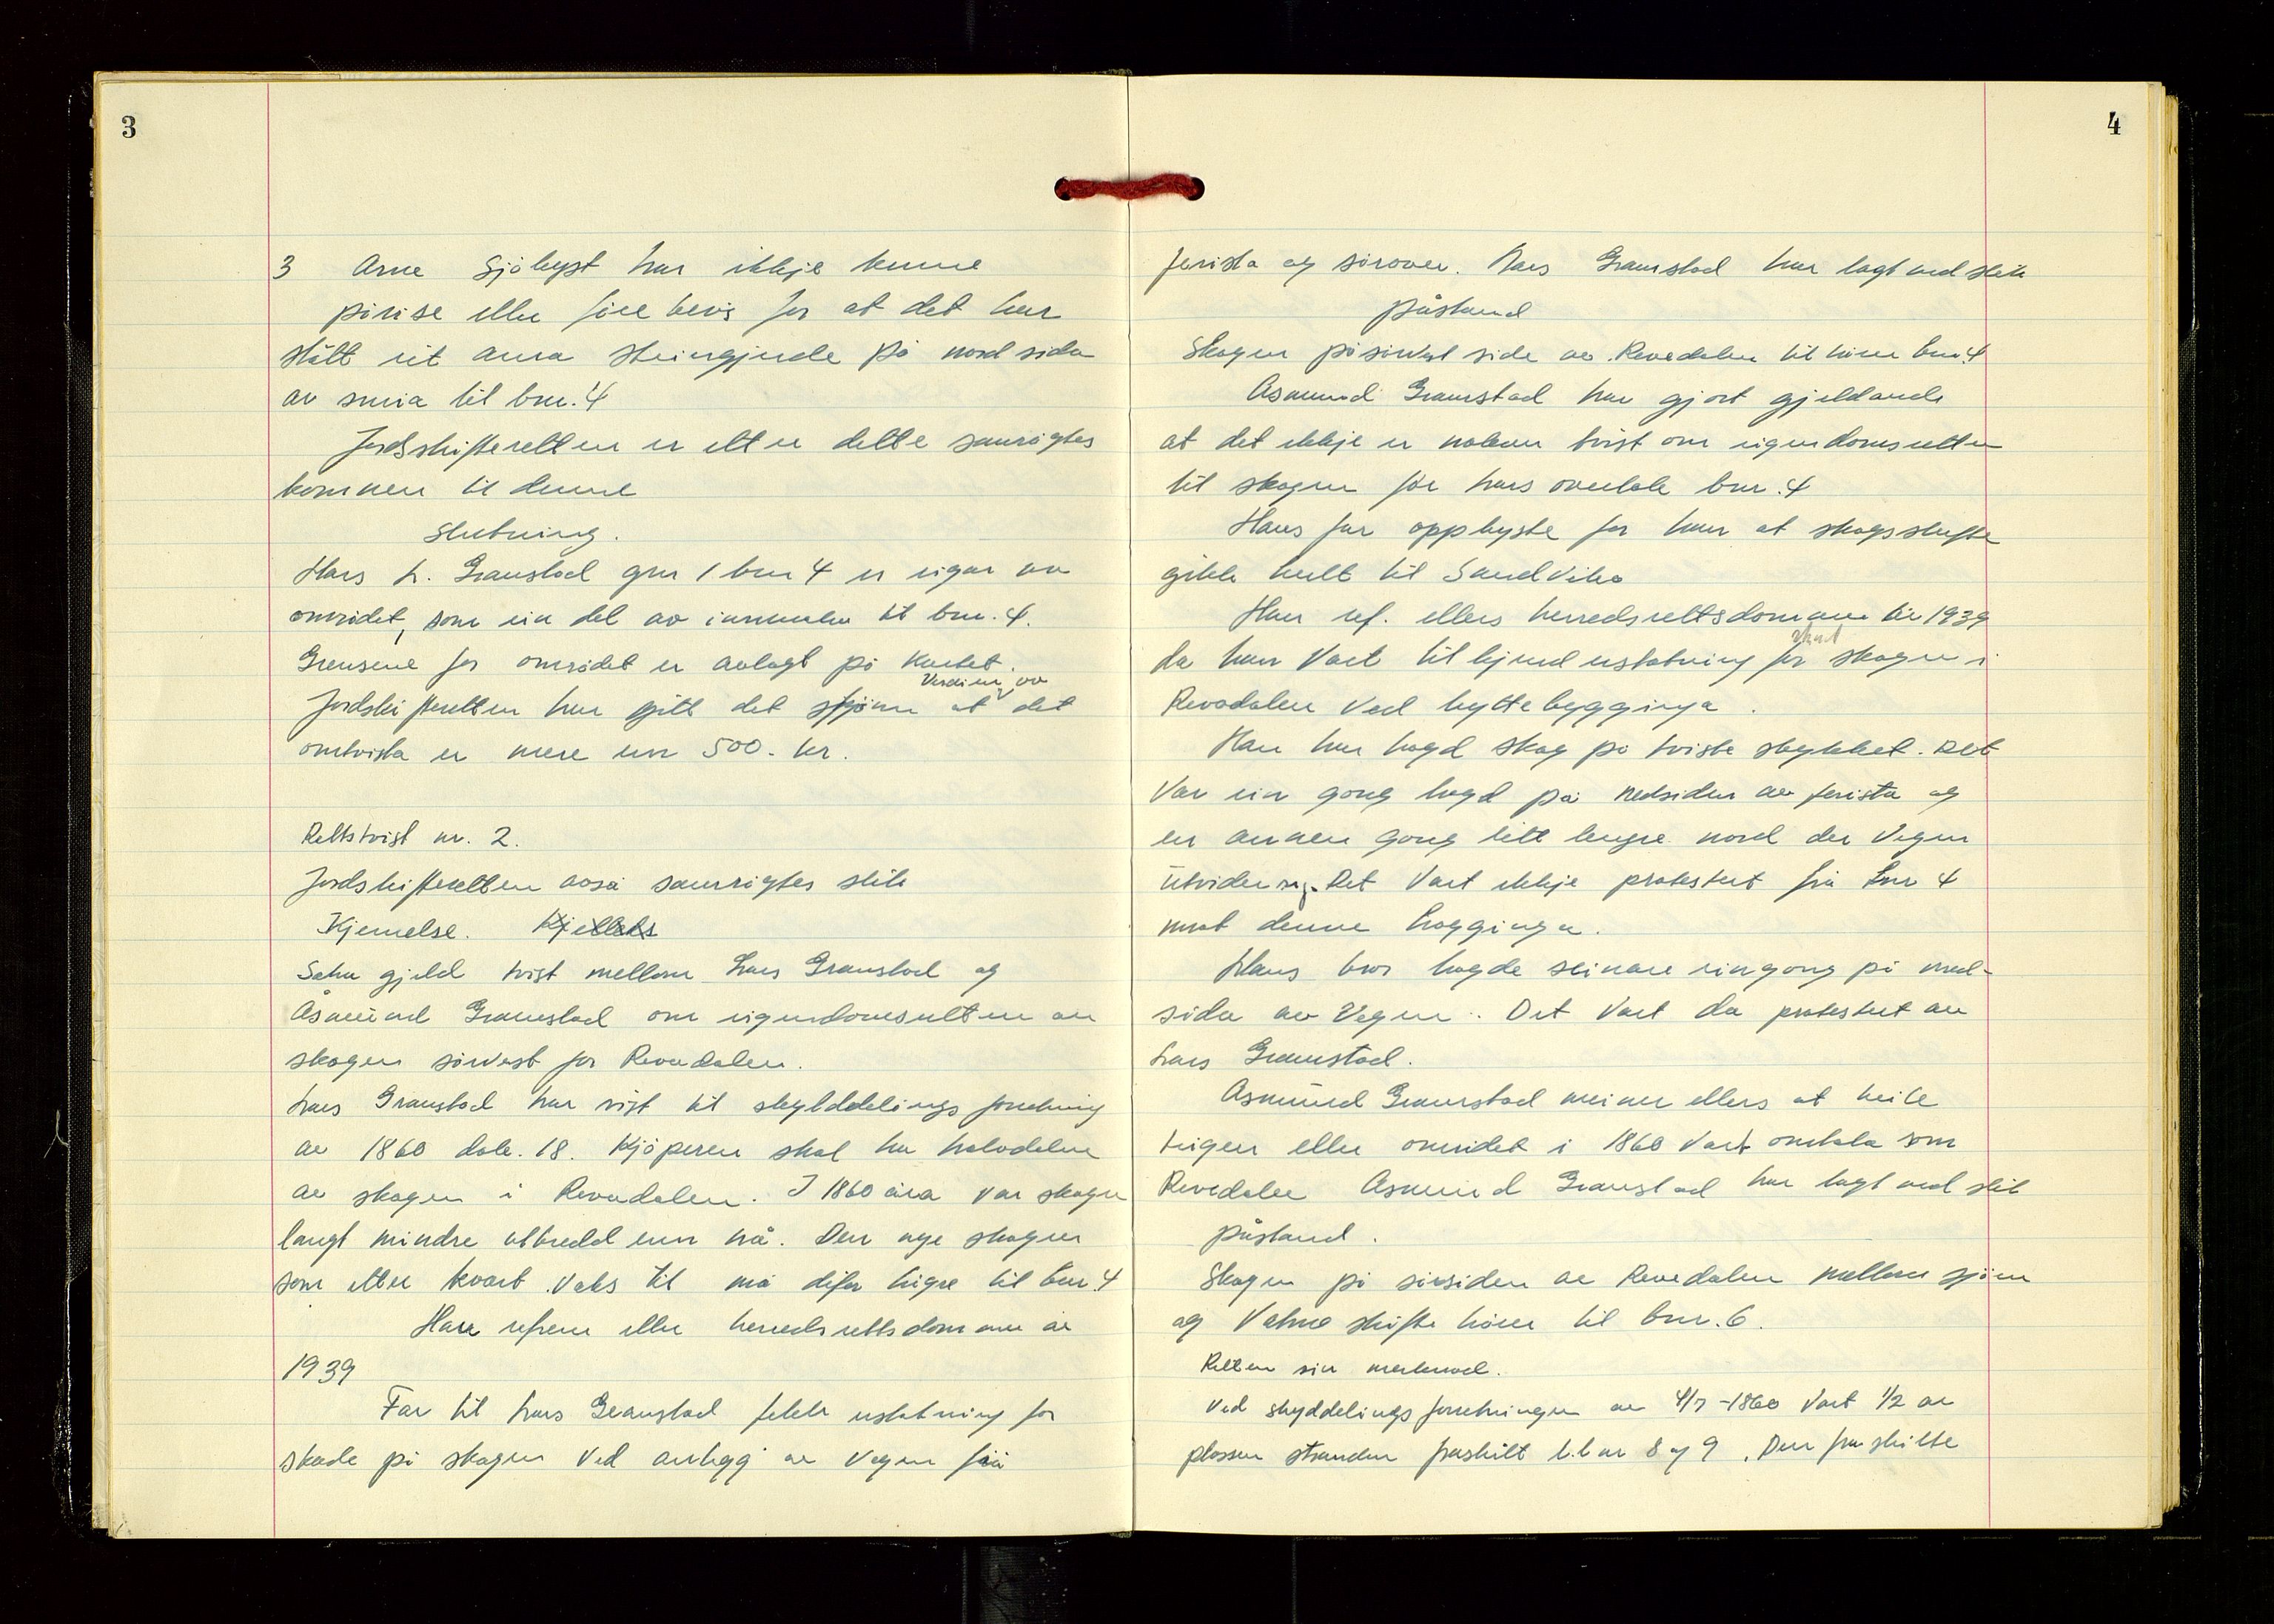 3
3 Arne Sjöhyst har ikkje kunne
påvise eller före bevis for at det har
stått eit anna steingjerde på nord sida
av smia til bnr. 4
Jordskifteretten er etter dette samrøgtes
kommen til denne
Slutning.
Hans L. Gramstad gnr 1 bnr 4 er eigar av
området, som ein del av innmarka til bnr. 4.
Grensene for området er avlagt på kartet.
Jordskifteretten har gitt det skjönn at verdien av det
omtvista er mere enn 500.- kr.
Rettstvist nr. 2.
Jordskifteretten avsa samrøgtes slik
Kjennelse. Kjellaks
Saka gjeld tvist mellom Lars Gramstad og
Åsmund Gramstad om eigendomsretten av
skogen sørvest for Revadalen.
Lars Gramstad har vist til skylddelings forretning
av 1860 dok. 18. Kjöperen skal ha halvdelen
av skogen i Revadalen. I 1860 åra var skogen
langt mindre utbredd enn nå. Den nye skogen
som etter kvart vaks til må difor høyre til bnr. 4
Han refererer eller herredsrettsdommen av
1939
Far til Lars Gramstad fekk erstatning for
skade på skogen ved anlegg av vegen frå
4
ferista og sørover. Lars Gramstad har lagt ned slik
påstand
Skogen på sörvest side av Revedalen til hører bnr 4
Asmund Gramstad har gjort gjeldande
at det ikkje er noken tvist om eigendomsretten
til skogen før Lars overtok bnr. 4
Hans far opplyste for han at skogsskifte
gikk heilt til Sandvika
Han ref. ellers herredsrettsdommen av 1939
da han vart til kjend erstatning for skogen i
Revadalen ved hyttebygginga.
Han har hogd skog på tviste stykket. Det
var ein gong hogd på nedsiden av ferista og
en annen gong litt lengre nord der vegen
utvider seg. Det vart ikkje protestert frå bnr 4
mot denne hogginga.
Hans bror hogde seinare ein gong på ned-
sida av vegen. Det vart da protestert av
Lars Gramstad.
Asmund Gramstad meiner ellers at heile
teigen eller området i 1860 vart omtala som
Revedalen Asmund Gramstad har lagt ned slik
påstand.
Skogen på sörsiden av Revedalen mellom sjöen
og Vatne skifte hører til bnr. 6.
Retten sin merknad.
Ved skylddelings forretningen av 4/7-1860 vart 1/2 av
plassen stranden fraskilt l.b nr 8 og 9. Den fraskilte